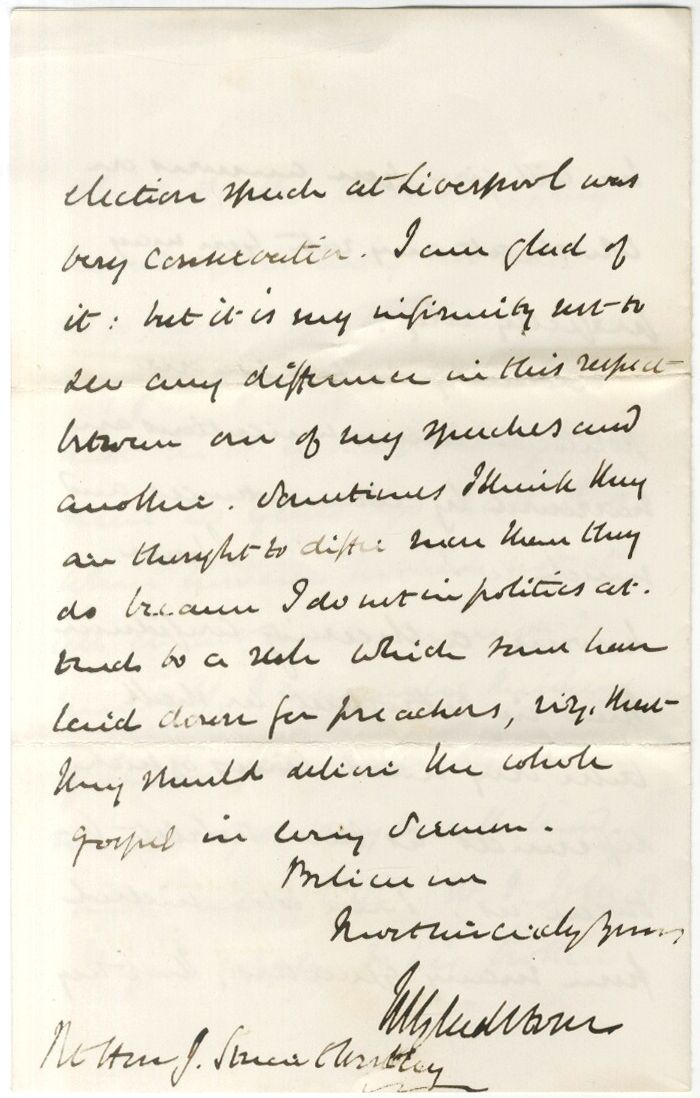 election speech at Liverpool was
very conservative. I am glad of
it: but it is my infirmity not to
see any difference in this respect
between one of my speeches and
another. Sometimes I think they
are thought to differ more than they
do because I do not in politics at-
tend to a rule which some have
laid down for preachers, viz. that
they should deliver the whole
gospel in every sermon.
Believe me
Most sincerely yours
WEGladstone
Rt Hon J.